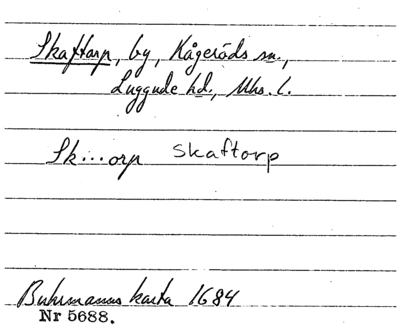 Skaftarp, by, Kågeröds sn.,
Luggude hd., Mhs. l.
Sk...orp Skaftorp
Buhrmanns karta 1684
Nr 5688.